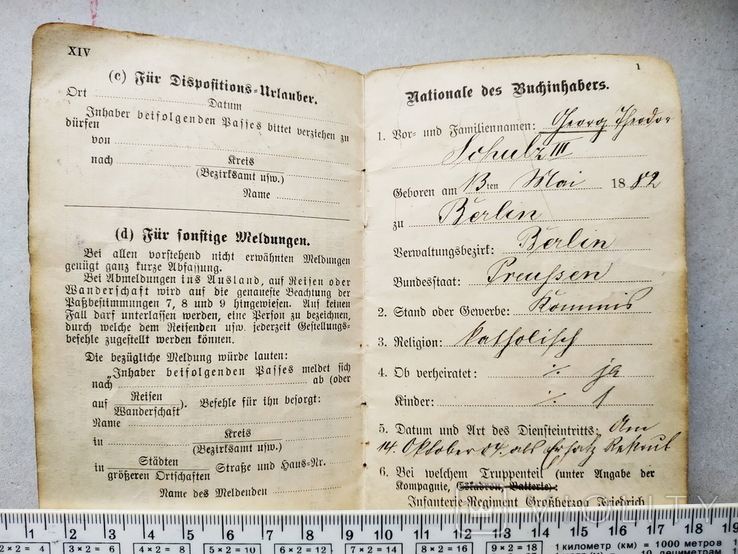 XIV
(c) Für Dispositions-Urlauber.
Ort Datum
Inhaber beifolgenden Passes bittet verziehen zu
dürfen
von
nach Kreis
(Bezirksamt usw.)
Name
(d) Für sonstige Meldungen.
Bei allen vorstehend nicht erwähnten Meldungen
genügt ganz kurze Abfassung.
Bei Abmeldungen ins Ausland, auf Reisen oder
Wanderschaft wird auf die genaueste Beachtung der
Paßbestimmungen 7, 8 und 9 hingewiesen. Auf keinen
Fall darf unterlassen werden, eine Person zu bezeichnen,
durch welche dem Reisenden usw. jederzeit Gestellungs-
befehle zugestellt werden können.
Die bezügliche Meldung würde lauten:
„Inhaber beifolgenden Passes meldet sich
nach ab (oder
auf Reisen
Wanderschaft). Befehle für ihn besorgt:
Name
in Kreis
(Bezirksamt usw.)
in Städten
größeren Ortschaften Straße und Haus-Nr.
Name des Meldenden
1
Nationale des Buchinhabers.
1. Vor- und Familiennamen: Georg Theodor
Schulz III
Geboren am 13ten Mai 1882
zu Berlin
Verwaltungsbezirk: Berlin
Bundesstaat: Preußen
2. Stand oder Gewerbe: Kommis
3. Religion: katholisch
4. Ob verheiratet: ./. ja
Kinder: ./. 1
5. Datum und Art des Diensteintritts: Am
14. Oktober 04 als Ersatz Rekrut
6. Bei welchem Truppenteil (unter Angabe der
Kompagnie, Eskadron, Batterie):
Infanterie-Regiment Großherzog Friedrich
1 2 3 4 5 6 7 8 9 10 11 12 13 14 15 16 17 18 19
2×2=4 3×2=6 4×2=8 5×2=10 6×2=12 7×2=14 8×2=16 9×2=18 1 километр (км) = 1000 метров